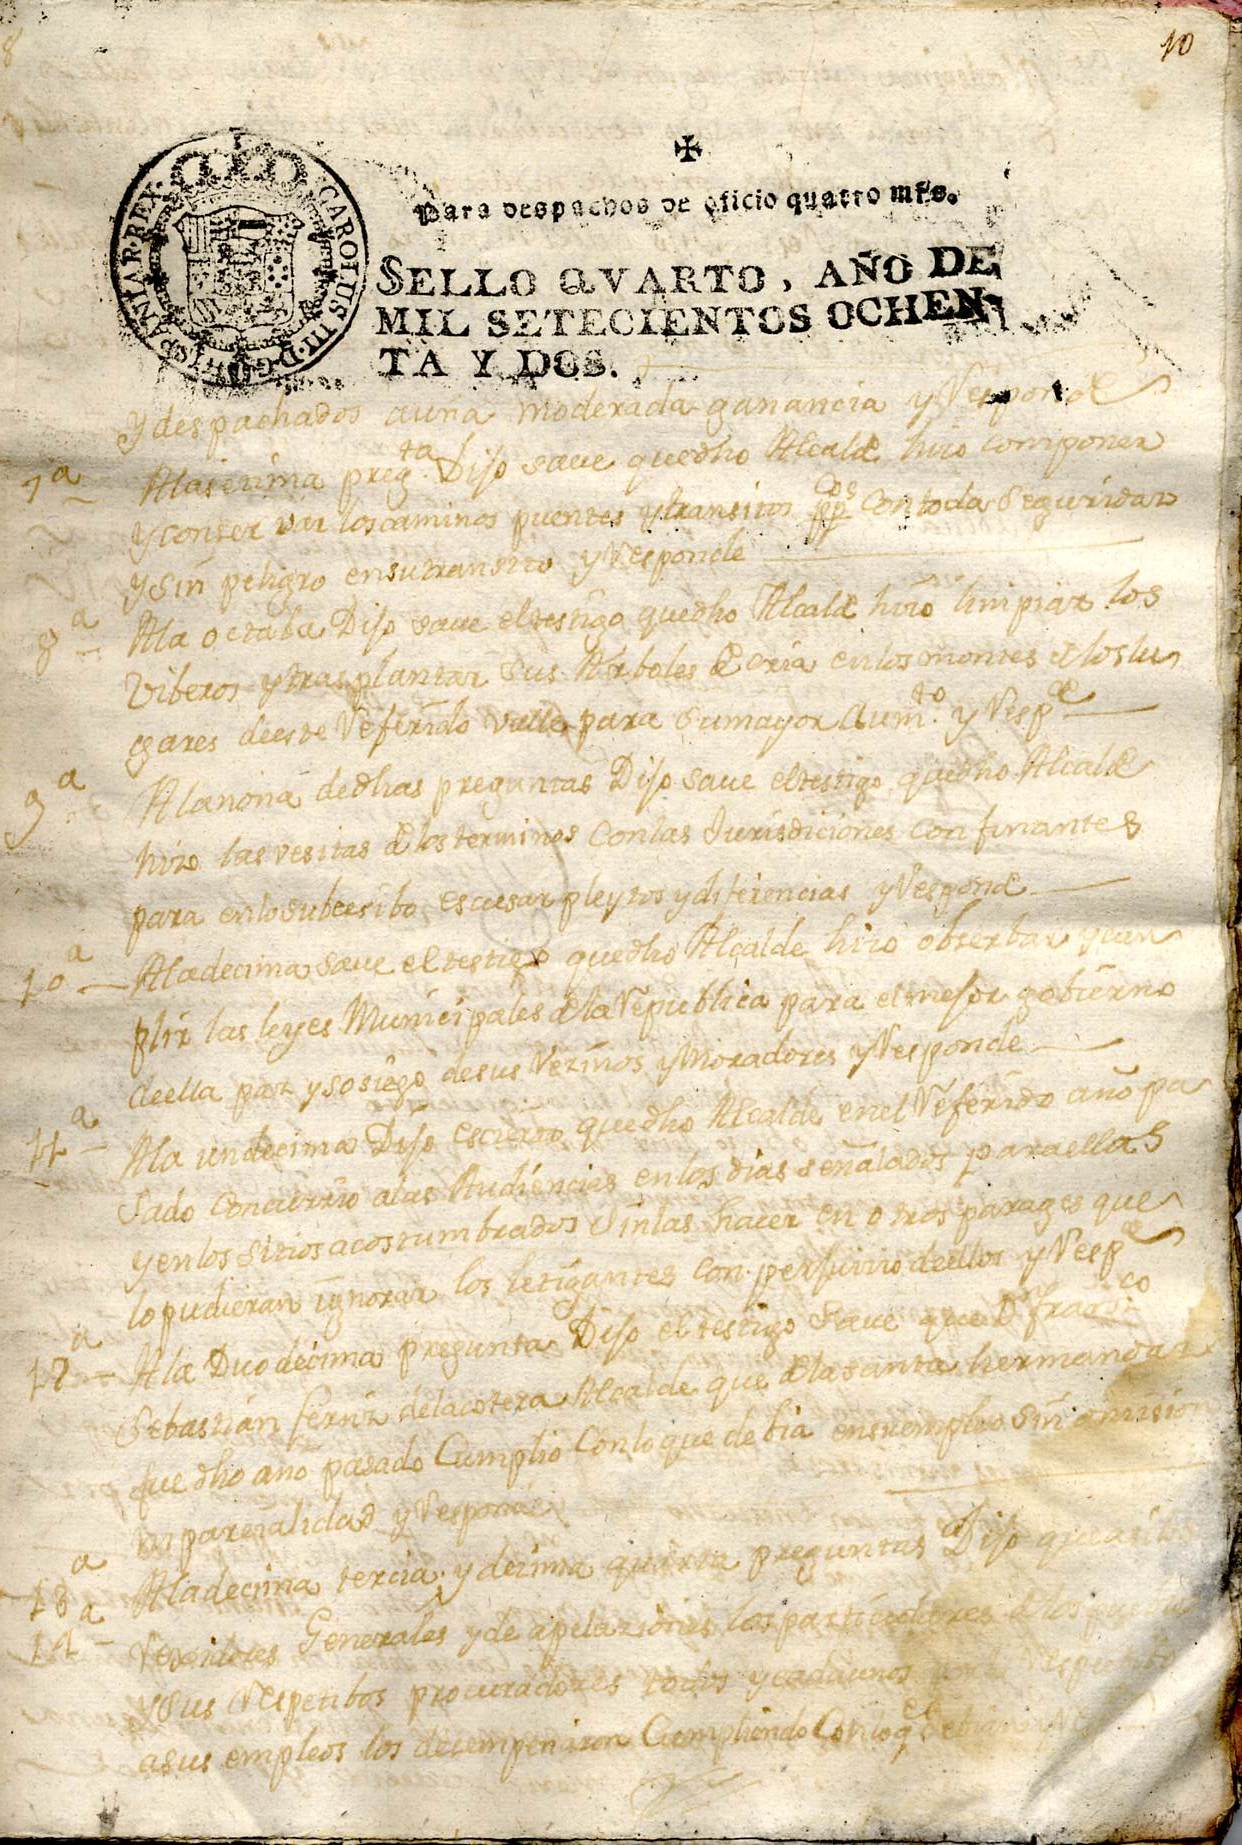 10
CAROLUS III·D·G·HISPANIAR·REX·
Para despachos de oficio quatro mrs.
SELLO QVARTO, AÑO DE
MIL SETECIENTOS OCHEN-
TA Y DOS.
Ydespachados auna moderada ganancia y Responde
7ª Ala septima pregta Dijo saue quedho Alcalde hizo componer
y conserbar los caminos puentes ytransitos ppcos contoda Seguridad
ysin peligro ensutransito yResponde
8ª Ala octaba Dijo saue eltestigo quedho Alcalde hizo limpiar los
viberos ytrasplantar sus Arboles de cria enlos montes de loslu
gares deeste Referido valle para sumayor Aumto. y Respde
9ª Alanona dedhas preguntas Dijo saue eltestigo quedho Alcalde
hizo las vesitas de los terminos Conlas Jurisdiciones confinantes
para enlo subcesibo escusar pleytos ydiferencias yResponde
10ª Aladecima saue eltestigo quedho Alcalde hizo obserbar ycun
plir las leyes Municipales de laRepublica para elmejor gobierno
deella paz ysosiego desus Vezinos yMoradores yResponde
11ª Ala undecima Dijo escierto quedho Alcalde enel Referido año pa
sado Concurrio alas Audiencias enlos dias señalados paraellas
yenlos sitios acostumbrados sinlas hacer en otros parages que
lo pudieran ignorar los letigantes con perjuicio deellos y Respde
12ª Ala Duodecima pregunta Dijo el testigo saue que Dn franco
Sebastian fernz delacotera Alcalde que de la santa hermandad
fue dho año pasado Cumplio Conloque debia ensuempleo sin omision
ni parcialidad yResponde
13ª Aladecima tercia ydezima quarta preguntas Dijo que asi los
14ª Rexidores Generales yde apelaziones los particulares de los pueblos
ysus Respetibos procuradores todos ycadaunos por lo Respectibo
asus empleos los desempeñaron Cumpliendo Conloqe debian y